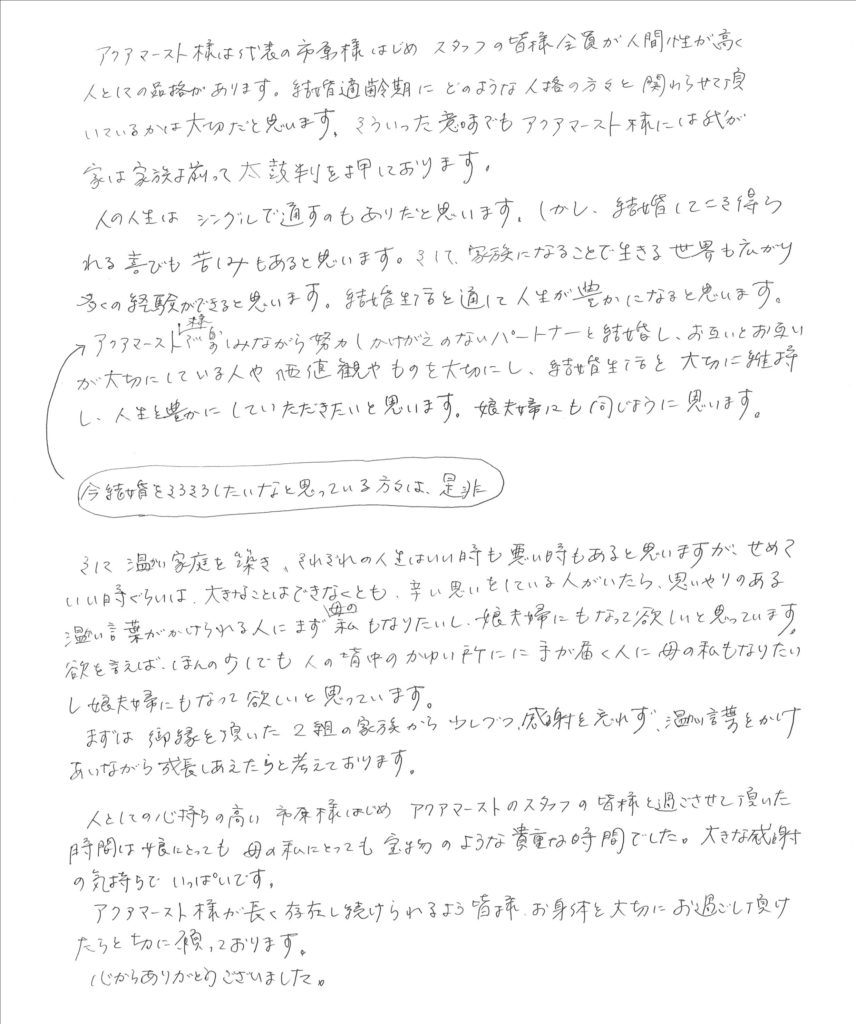 アクアマースト様は代表の市原様はじめ スタッフの皆様全員が人間性が高く
人としての品格があります。結婚適齢期に どのような人格の方々と関わらせて頂
いているかは大切だと思います。そういった意味でもアクアマースト様には我が
家は家族は揃って太鼓判を押しております。
人の人生は シングルで通すのもありだと思います。しかし、結婚してこそ得ら
れる喜びも苦しみもあると思います。そして、家族になることで生きる世界も広がり
多くの経験ができると思います。結婚生活を通して人生が豊かになると思います。
アクアマースト様で楽しみながら努力しかけがえのないパートナーと結婚し、お互いとお互い
が大切にしている人や価値観やものを大切にし、結婚生活を大切に維持
し、人生を豊かにしていただきたいと思います。娘夫婦にも同じように思います。
今結婚をそろそろしたいなと思っている方々は、是非
そして温かい家庭を築き、それぞれの人生はいい時も悪い時もあると思いますが、せめて
いい時ぐらいは、大きなことはできなくとも、辛い思いをしている人がいたら、思いやりのある
温かい言葉がかけられる人にまず母の私もなりたいし、娘夫婦にもなって欲しいと思っています。
欲を言えば、ほんの少しでも人の背中のかゆい所にに手が届く人に母の私もなりたい
し娘夫婦にもなって欲しいと思っています。
まずは御縁を頂いた2組の家族から少しづつ、感謝を忘れず、温かい言葉をかけ
あいながら成長しあえたらと考えております。
人としての心持ちの高い 市原様はじめ アクアマーストのスタッフの皆様と過ごさせて頂いた
時間は娘にとっても母の私にとっても宝物のような貴重な時間でした。大きな感謝
の気持ちでいっぱいです。
アクアマースト様が長く存在し続けられるよう皆様、お身体を大切にお過ごし頂け
たらと切に願っております。
心からありがとうございました。